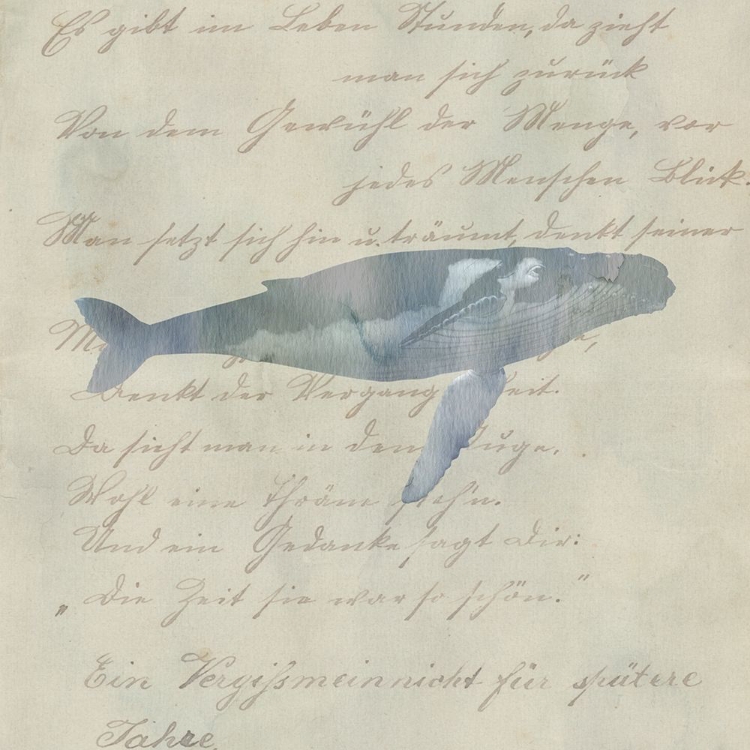 Es gibt im Leben Stunden, da zieht
man sich zurück
Von dem Gewühl der Menge, vor
jedes Menschen Blick.
Man setzt sich hin u. träumt, denkt seiner
Denkt der Vergang eit.
Da sieht man in den Auge,
Wohl eine Thräne steh'n.
Und ein Gedanke sagt Dir:
„Die Zeit sie war so schön."
Ein Vergißmeinnicht für spätere
Jahre,